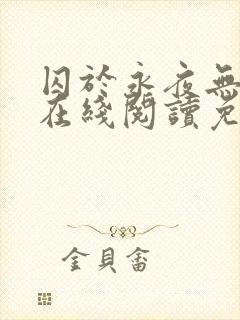 囚於永夜無
在綫閱讀免
金貝畲